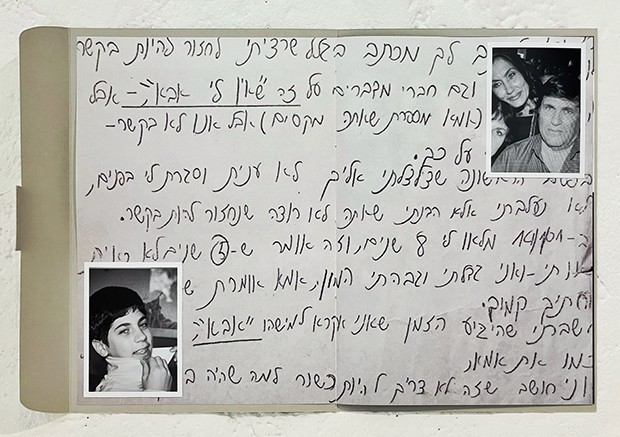 לך מכתב בגלל שרציתי לחזור להיות בקשר
וגם חברי מדברים על זה "שאין לי אבא", - אבל
(אמא מספרת שאתה מקסים) אבל אנו לא בקשר -
על כך.
הראשונה שצלצלתי אליך לא ענית וסגרת לי בפנים,
נעלבתי אלא הבנתי שאתה לא רוצה שנחזור להיות בקשר.
מלאו לי 8 שנים, וזה אומר ש- שנים לא ראית
אותי - ואני גדלתי וגבהתי המון. אמא אומרת
קמים.
שברתי שהגיע הזמן שאני אקרא למישהו "אבא",
כמו את אמא
אני חושב שזה לא צריך להיות קשור למה שהיה